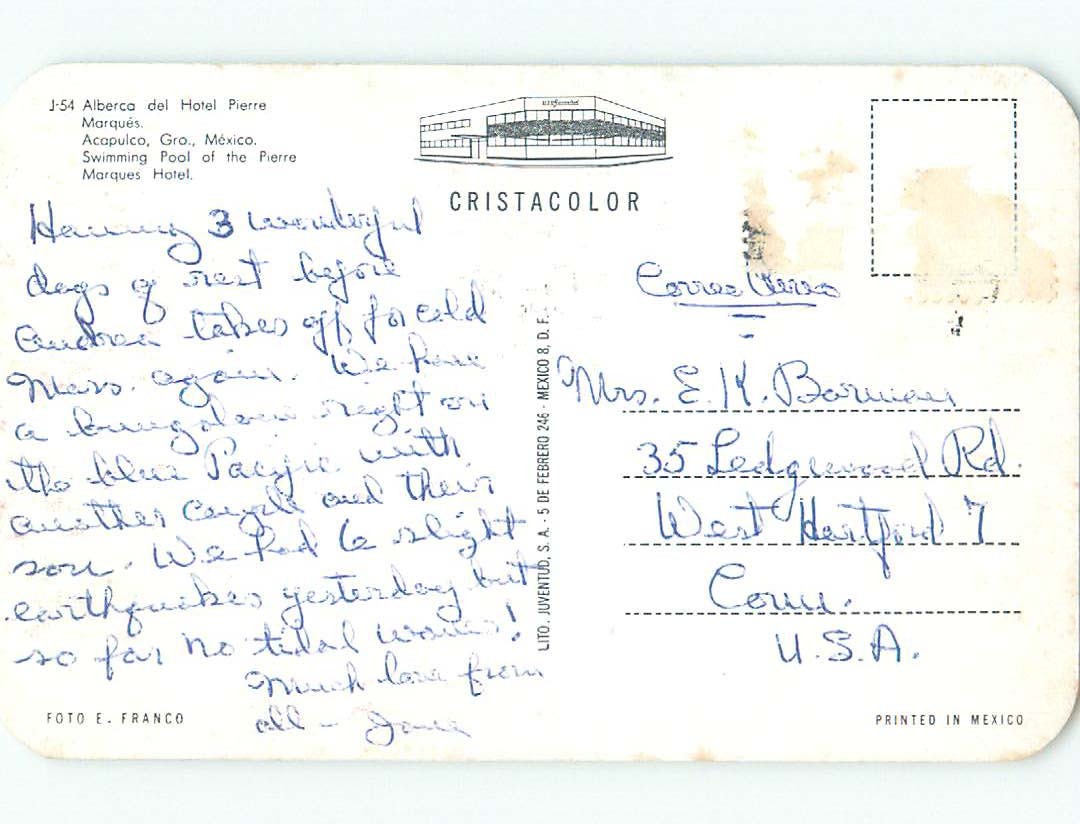 J-54 Alberca del Hotel Pierre
Marqués.
Acapulco, Gro., México.
Swimming Pool of the Pierre
Marques Hotel.
CRISTACOLOR
Having 3 wonderful
days of rest before
Andrea takes off for cold
Mass. again. We have
a bungalow right on
the blue Pacific with
another couple and their
son. We had 6 slight
earthquakes yesterday but
so far no tidal waves!
Much love from
all -
FOTO E. FRANCO
LITO. JUVENTUD, S. A. - 5 DE FEBRERO 246 - MEXICO 8, D. F.
Correo Aereo
Mrs. E. K. Borman
35 Ledgewood Rd.
West Hartford 7
Conn.
U.S.A.
PRINTED IN MEXICO